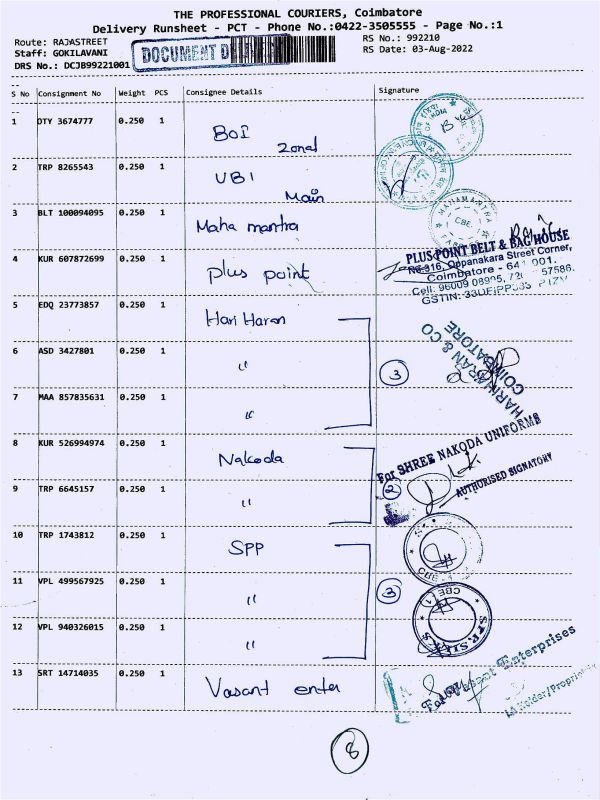 THE PROFESSIONAL COURIERS, Coimbatore
Delivery Runsheet - PCT - Phone No.:0422-3505555 - Page No.:1
Route: RAJASTREET RS No.: 992210
Staff: GOKILAVANI RS Date: 03-Aug-2022
DRS No.: DCJB99221001 DOCUMENT
S No Consignment No Weight PCS Consignee Details Signature
1 DTY 3674777 0.250 1 BOI Zonal
2 TRP 8265543 0.250 1 UBI Main
3 BLT 100094095 0.250 1 Maha mantra
MAHAMANTRA CBE.
4 KUR 607872699 0.250 1 plus point
PLUS POINT BELT & BAG HOUSE
316, Oppanakara Street Corner,
Coimbatore - 641 001.
Cell: 96009 08995, 57586.
GSTIN:
5 EDQ 23773857 0.250 1 Hari Haran
HARIHARAN & CO
COIMBATORE
6 ASD 3427801 0.250 1 "
3
7 MAA 857835631 0.250 1 "
8 KUR 526994974 0.250 1 Nakoda
For SHREE NAKODA UNIFORMS
AUTHORISED SIGNATORY
9 TRP 6645157 0.250 1 " 2
10 TRP 1743812 0.250 1 SPP
CBE
11 VPL 499567925 0.250 1 " 3
CBE
12 VPL 940326015 0.250 1 "
13 SRT 14714035 0.250 1 Vasant enter
Enterprises
8